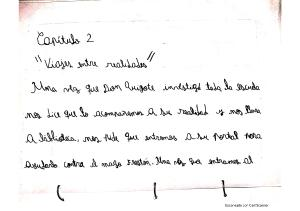 Capitulo 2
"Viajes entre realidades"
Una vez que Don Quijote investigó toda la escuela
nos dice que lo acompañemos a su realidad y nos lleva
a biblioteca, nos pide que entremos a su portal para
ayudarlo contra el mago Frestón. Una vez que entramos al
Escaneado con CamScanner